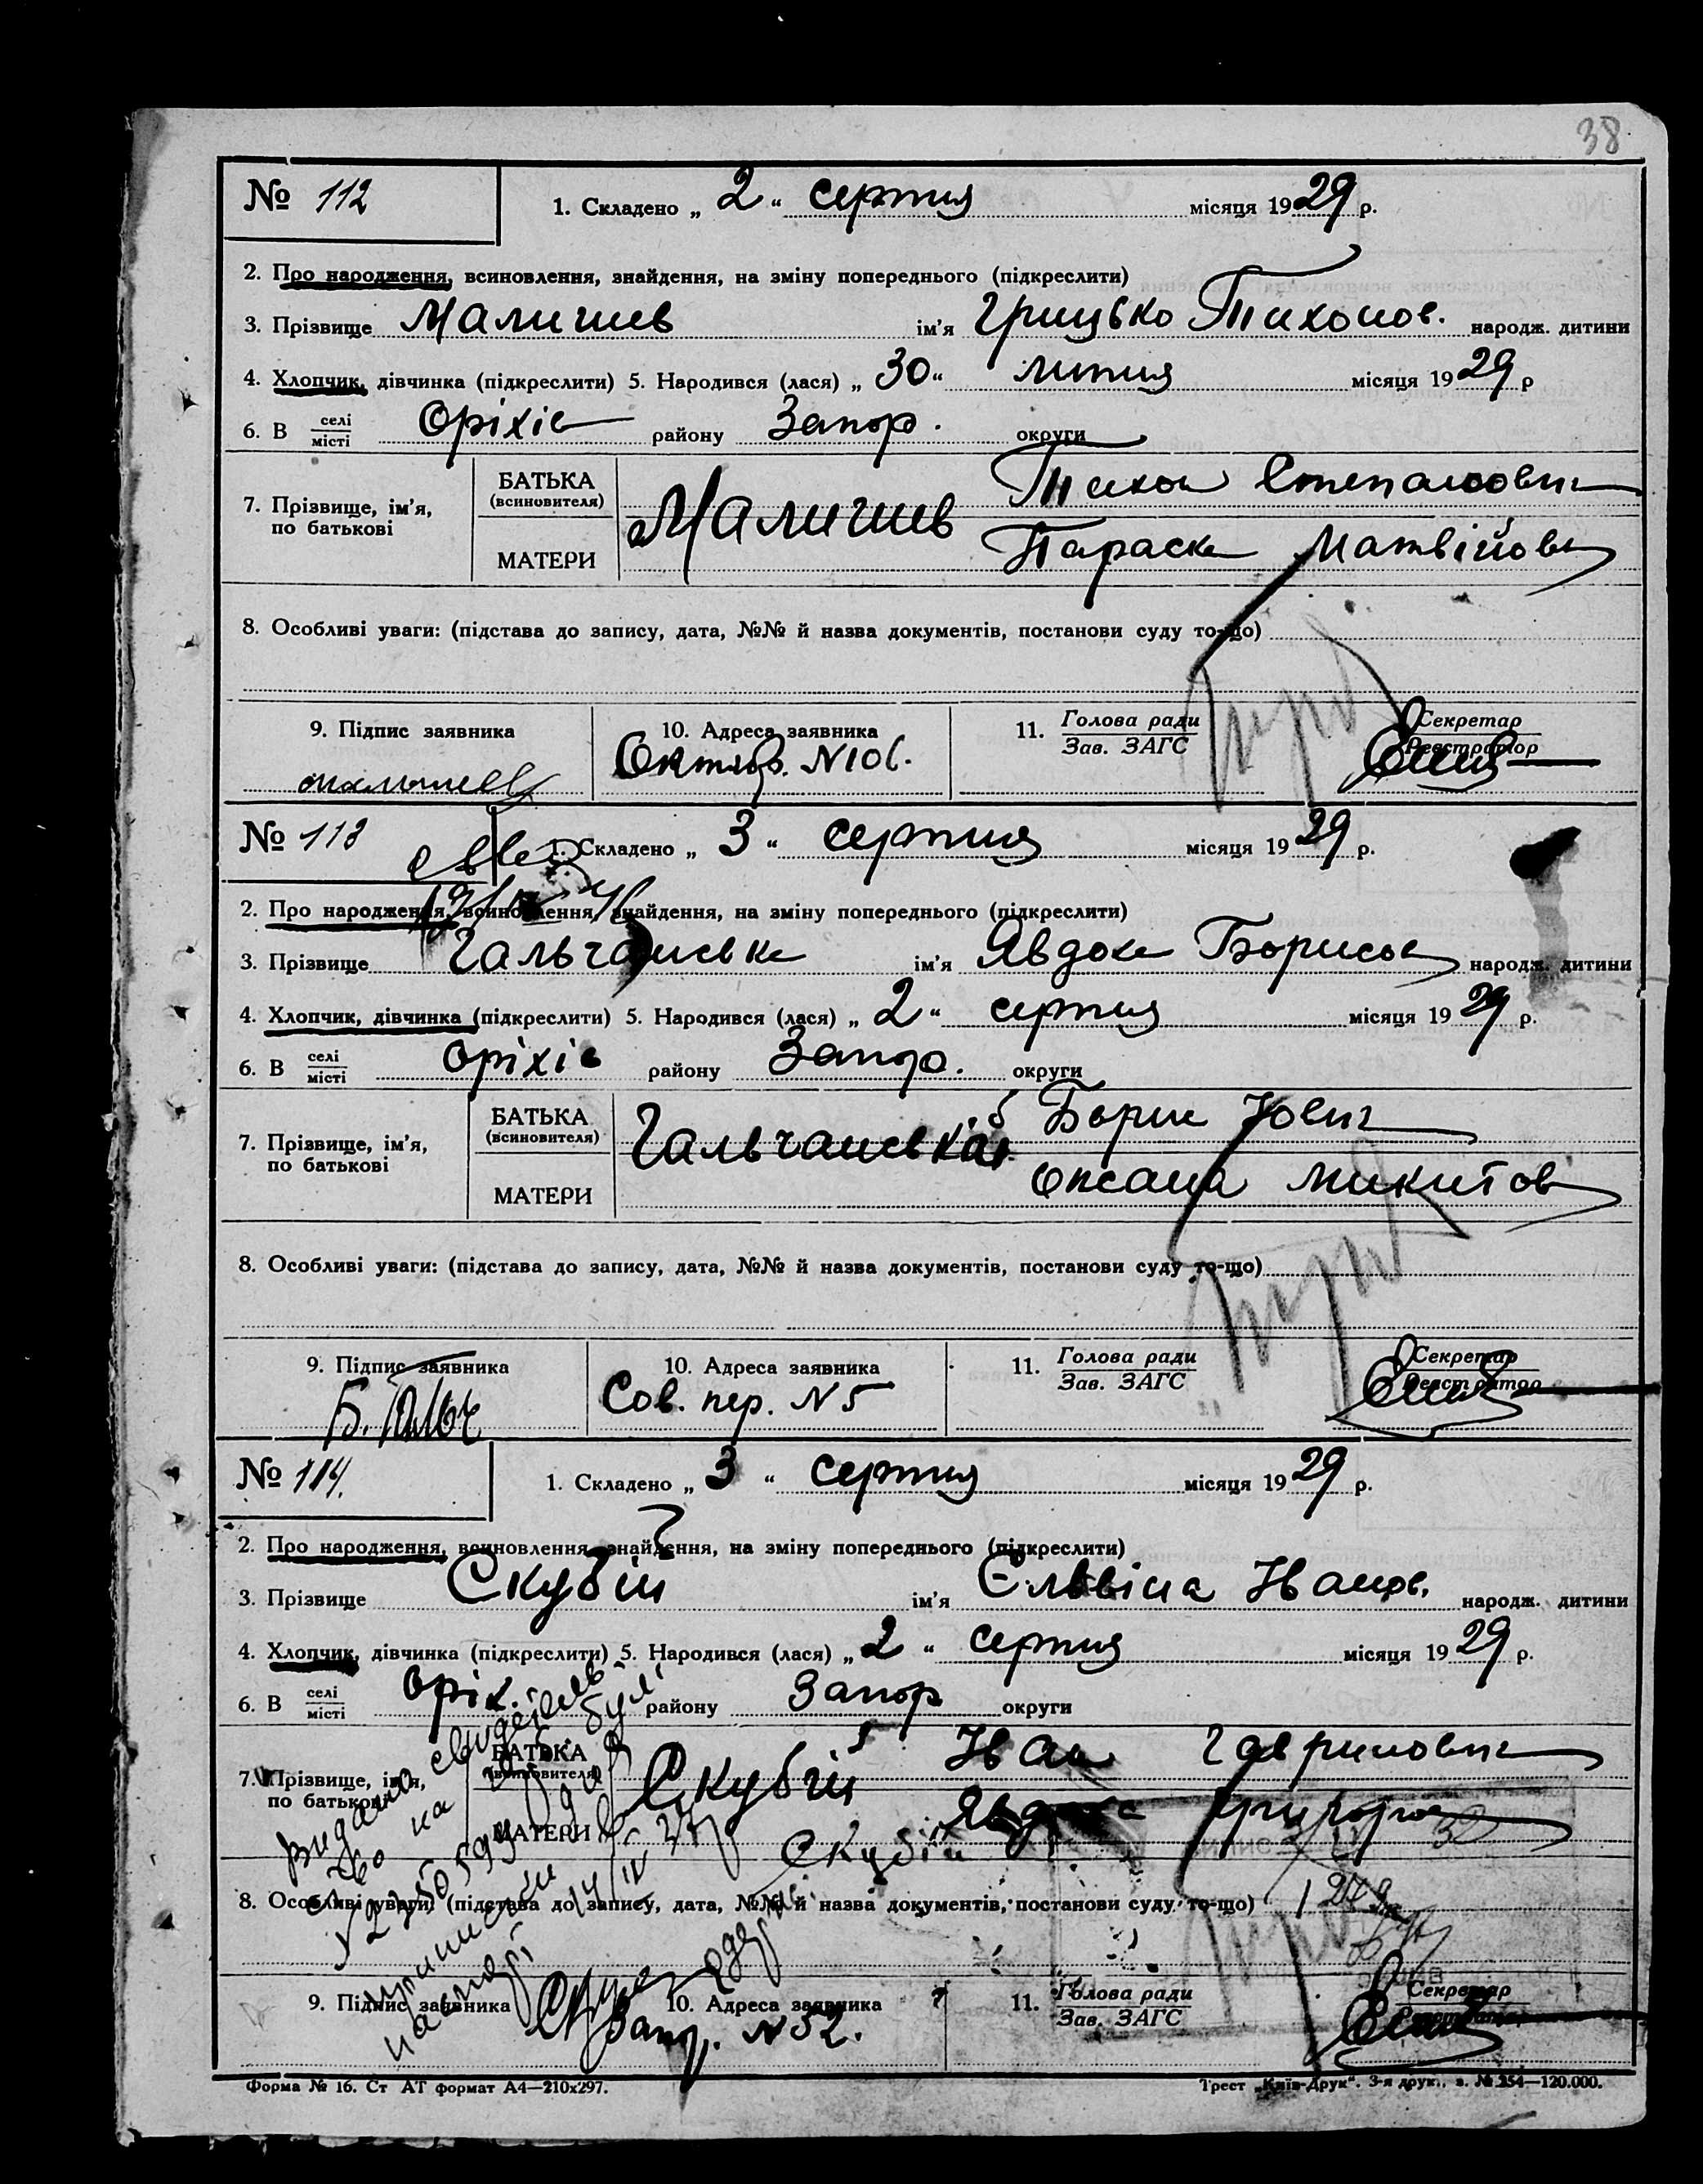 38
№ 112
1. Складено „ 2 “ серпня місяця 1929 р.
2. Про народження, всиновлення, знайдення, на зміну попереднього (підкреслити)
3. Прізвище Малишев ім'я Грицько Тихонов. народж. дитини
4. Хлопчик, дівчинка (підкреслити) 5. Народився (лася) „ 30 “ липня місяця 1929 р
6. В селі/місті Оріхів району Запор. округи
7. Прізвище, ім'я, по батькові
БАТЬКА (всиновителя)
МАТЕРИ
Малишев
Тихон Степанович
Параска Матвійов
8. Особливі уваги: (підстава до запису, дата, №№ й назва документів, постанови суду то-що)
9. Підпис заявника
10. Адреса заявника
11. Голова ради
Зав. ЗАГС
Секретар
Реєстратор
Октябр. N106.
№ 113
1. Складено „ 3 “ серпня місяця 1929 р.
2. Про народження, всиновлення, знайдення, на зміну попереднього (підкреслити)
3. Прізвище Гальчанська ім'я Явдоха Борисов народж. дитини
4. Хлопчик, дівчинка (підкреслити) 5. Народився (лася) „ 2 “ серпня місяця 1929 р.
6. В селі/місті Оріхів району Запор. округи
7. Прізвище, ім'я, по батькові
БАТЬКА (всиновителя)
МАТЕРИ
Борис Йович
Оксана Микитов
8. Особливі уваги: (підстава до запису, дата, №№ й назва документів, постанови суду то-що)
9. Підпис заявника
10. Адреса заявника
11. Голова ради
Зав. ЗАГС
Секретар
Реєстратор
Б. Гальч
Сов. пер. N 5
№ 114.
1. Складено „ 3 “ серпня місяця 1929 р.
2. Про народження, всиновлення, знайдення, на зміну попереднього (підкреслити)
3. Прізвище Скубій ім'я Ельвіна Іванов. народж. дитини
4. Хлопчик, дівчинка (підкреслити) 5. Народився (лася) „ 2 “ серпня місяця 1929 р.
6. В селі/місті Оріх. району Запор округи
7. Прізвище, ім'я, по батькові
БАТЬКА (всиновителя)
МАТЕРИ
Скубій
Іван Гаврилович
Явдоха Григоров
Скубій
8. Особливі уваги: (підстава до запису, дата, №№ й назва документів, постанови суду то-що)
9. Підпис заявника
10. Адреса заявника
11. Голова ради
Зав. ЗАГС
Секретар
Запор. N 52.
Форма № 16. Ст АТ формат А4—210х297.
Трест „Київ-Друк“. 3-я друк., з. № 254—120.000.